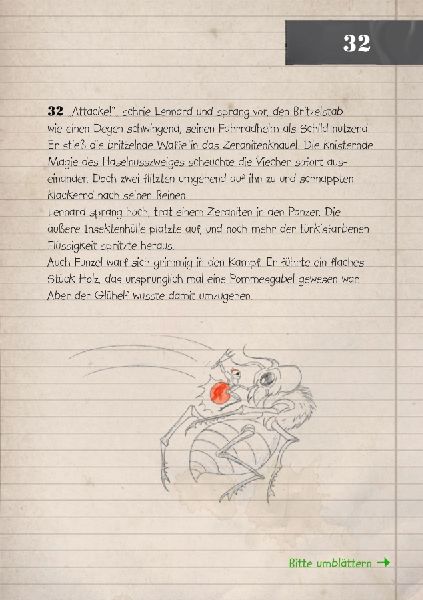 32
32 „Attacke!“, schrie Lennard und sprang vor, den Britzelstab
wie einen Degen schwingend, seinen Fahrradhelm als Schild nutzend.
Er stieß die britzelnde Waffe in das Zeranitenknäuel. Die knisternde
Magie des Haselnusszweiges scheuchte die Viecher sofort aus-
einander. Doch zwei flitzten umgehend auf ihn zu und schnappten
klackernd nach seinen Beinen.
Lennard sprang hoch, trat einem Zeraniten in den Panzer. Die
äußere Insektenhülle platzte auf, und noch mehr der türkisfarbenen
Flüssigkeit spritzte heraus.
Auch Funzel warf sich grimmig in den Kampf. Er führte ein flaches
Stück Holz, das ursprünglich mal eine Pommesgabel gewesen war.
Aber der Glühelf wusste damit umzugehen.
Bitte umblättern →